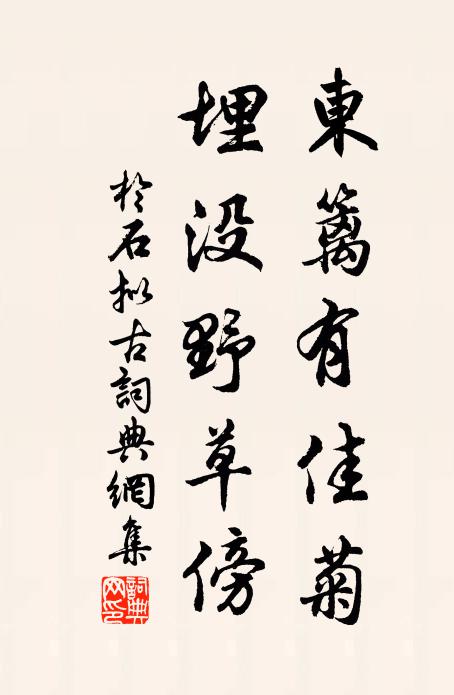 東籬有佳菊
埋没野草傍
於石拟古詞典網集
詞典
网印